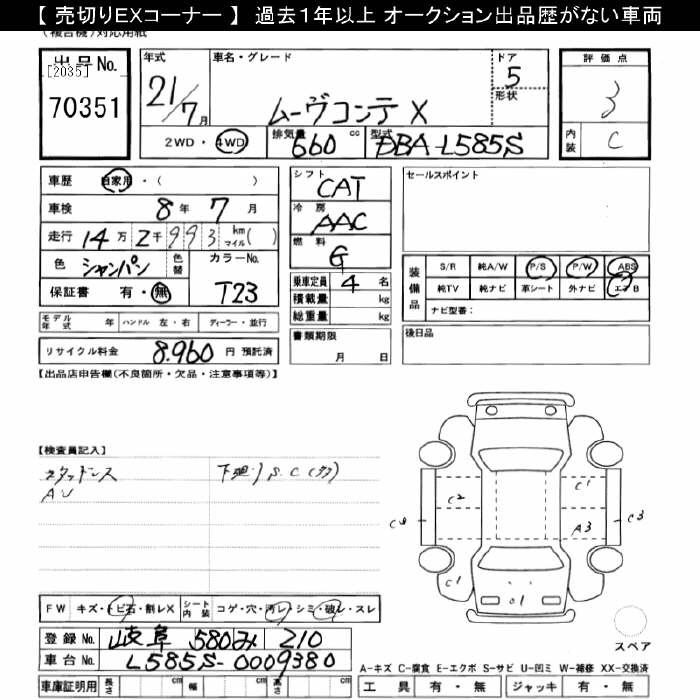 【 売切りEXコーナー 】 過去1年以上 オークション出品歴がない車両
(複合機)対応用紙
出品No.
[2035]
70351
年式
21/7月
車名・グレード
ムーヴコンテ X
ドア
5
形状
評価点
3
内装
C
2WD・4WD
排気量
660 cc
型式
DBA-L585S
車歴 自家用・( )
車検 8年 7月
走行 14万 2千993 km マイル( )
色 シャンパン 色替
カラーNo.
T23
保証書 有・無
シフト
CAT
冷房
AAC
燃料
G
乗車定員 4 名
積載量 kg
総重量 kg
セールスポイント
装備品
S/R 純A/W P/S P/W ABS
純TV 純ナビ 革シート 外ナビ エアB
ナビ型番:
モデル年式 年 ハンドル 左・右 ディーラー・並行
書類期限
月 日
後日品
リサイクル料金 8.960 円 預託済
【出品店申告欄(不良箇所・欠品・注意事項等)】
【検査員記入】
スタッドレス
AU
下廻り S.C
C2
C1
A3
C3
C1
FW キズ・トビ石・割レX シート内装 コゲ・穴・汚レ・シミ・破レ・スレ
スペア
登録No. 岐阜 580み 210
車台No. L585S-0009380
A-キズ C-腐食 E-エクボ S-サビ U-凹ミ W-補修 XX-交換済
車庫証明用 長さ cm 幅 cm 高さ cm
工具 有・無 ジャッキ 有・無